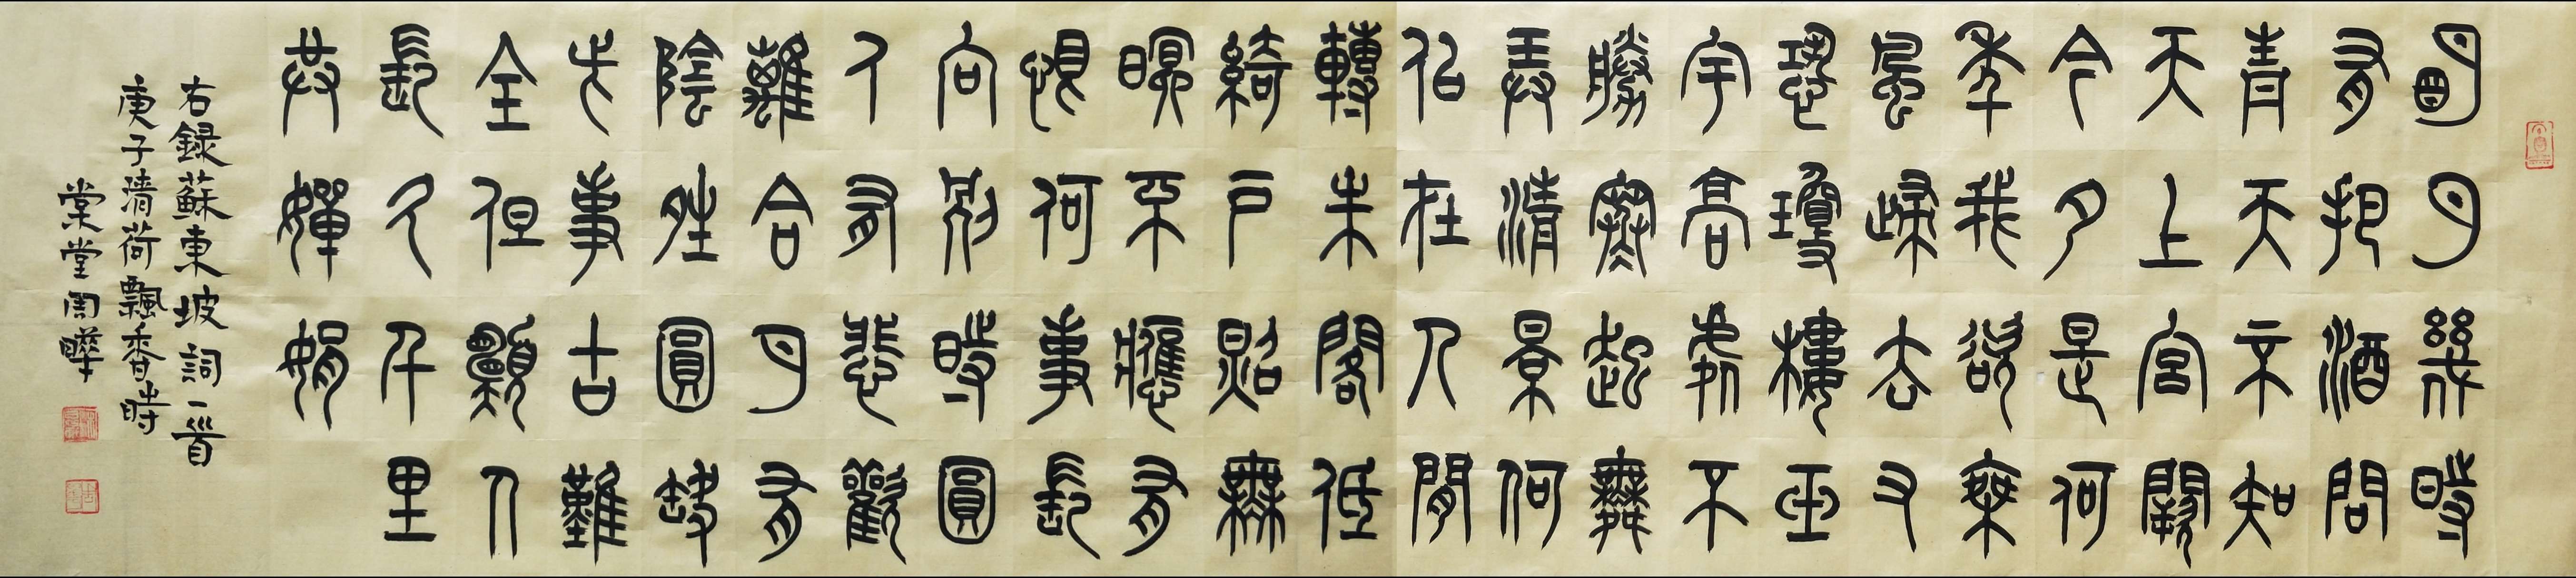 明月幾時
有把酒問
青天不知
天上宮闕
今夕是何
年我欲乘
風歸去又
恐瓊樓玉
宇高處不
勝寒起舞
弄清景何
似在人間
轉朱閣低
綺戶照無
眠不應有
恨何事長
向別時圓
人有悲歡
離合月有
陰晴圓缺
此事古難
全但願人
長久千里
共嬋娟
右録蘇東坡詞一首
庚子清荷飄香時
棠堂周曄